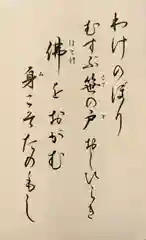 わけのぼり
むすぶ笹の戸おしひらき
佛をおがむ
身こそたのもし